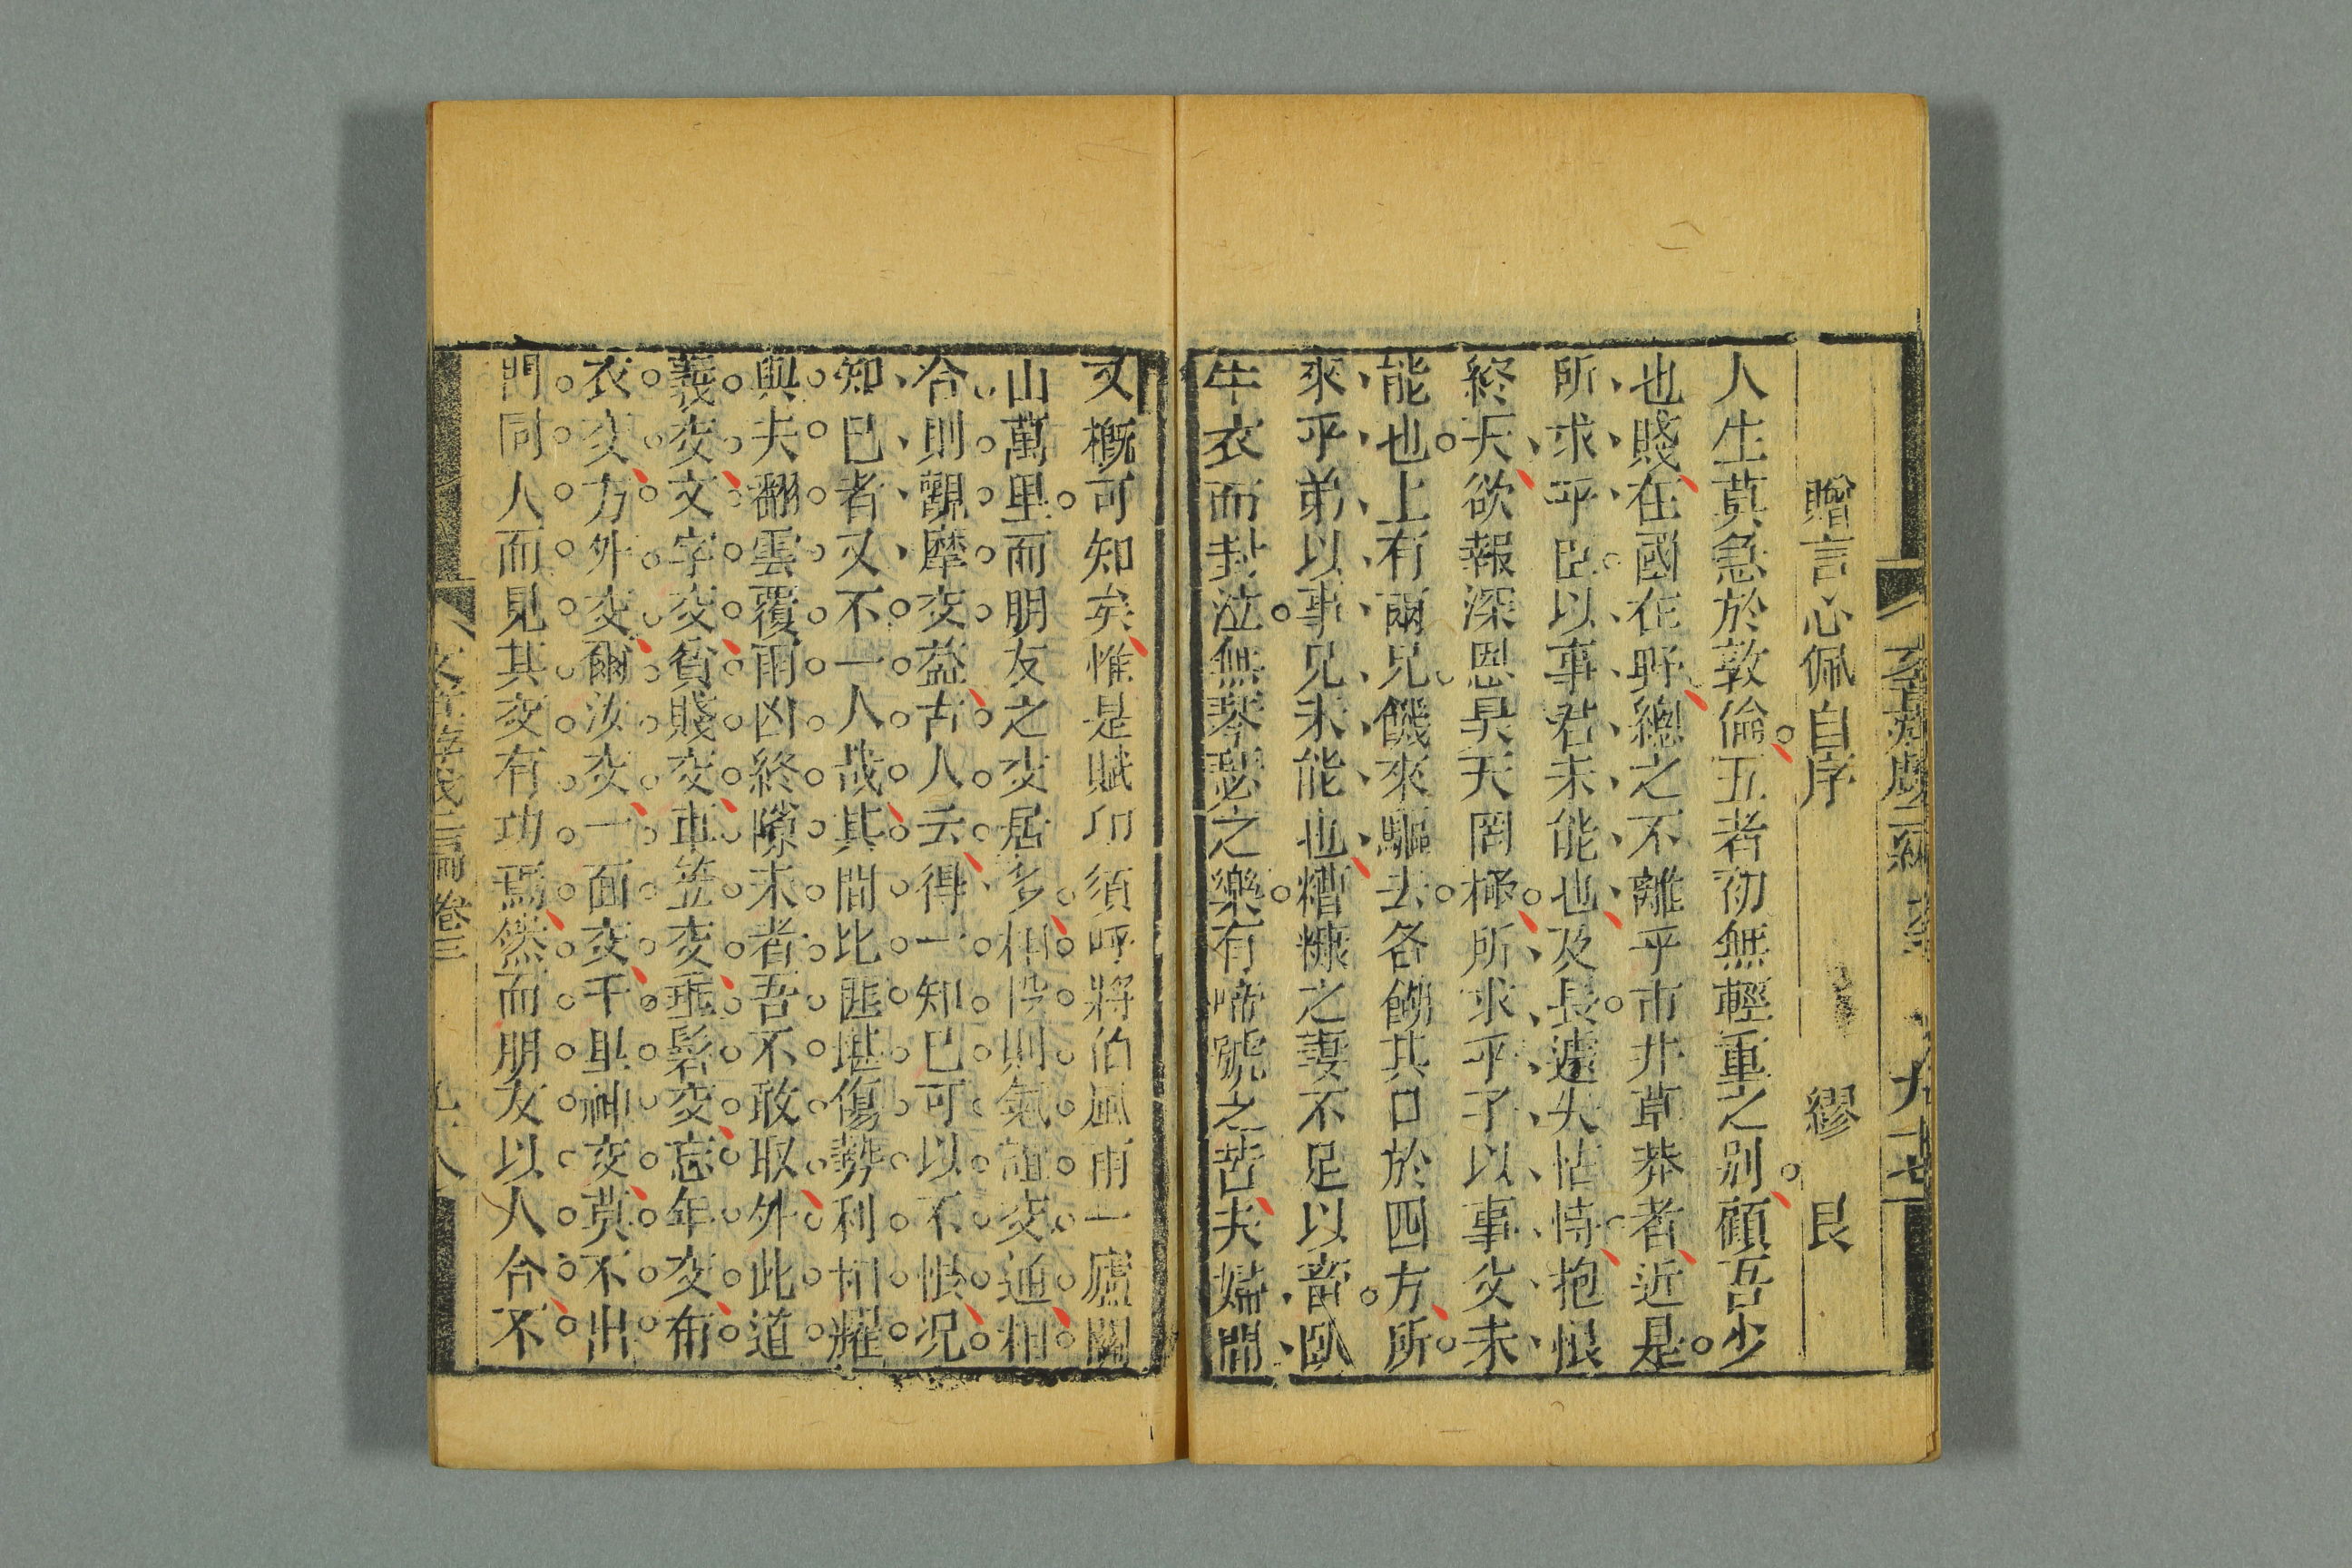 贈言心佩自序 繆艮
人生莫急於敦倫五者初無輕重之別顧吾少
也賤在國在野總之不離乎市井草莽者近是
所求乎臣以事君未能也及長遽失怙恃抱恨
終天欲報深恩昊天罔極所求乎子以事父未
能也上有兩兄饑來驅去各餬其口於四方所
求乎弟以事兄未能也糟糠之妻不足以畜臥
牛衣而對泣無琴瑟之樂有啼號之苦夫婦間
又概可知矣惟是賦卬須呼將伯風雨一廬關
山萬里而朋友之交居多相悅則氣誼交通相
合則觀摩交益古人云得一知已可以不恨况
知已者又不一人哉其間比匪堪傷勢利相耀
與夫翻雲覆雨凶終隙末者吾不敢取外此道
義交文字交貧賤交車笠交垂髫交忘年交布
衣交方外交爾汝交一面交千里神交莫不出
門同人而見其交有功焉然而朋友以人合不
卷三